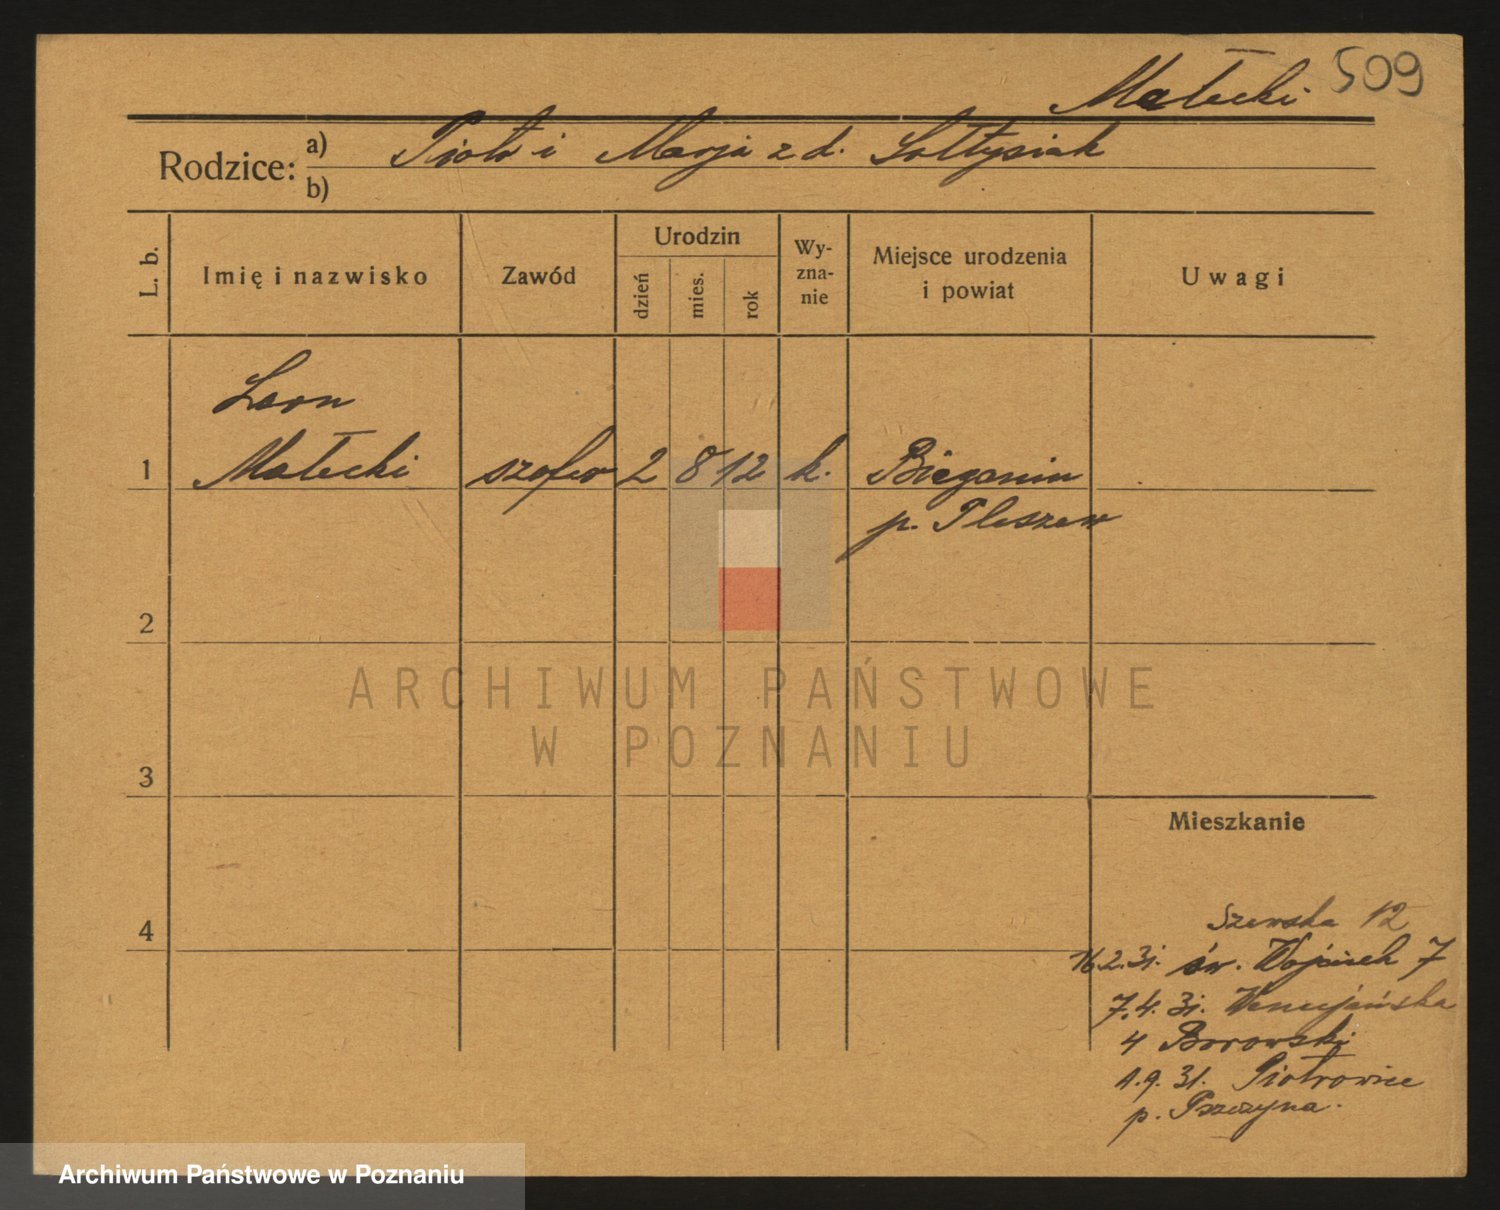 Małecki 509
Rodzice: a) Piotr i Marja z d. Sołtysiak
b)
L. b.
Imię i nazwisko
Zawód
Urodzin
dzień
mies.
rok
Wy-
zna-
nie
Miejsce urodzenia
i powiat
Uwagi
Leon
1 Małecki szofer 2 8 12 k. Bieganin
p. Pleszew
2
ARCHIWUM PAŃSTWOWE
W POZNANIU
3
Mieszkanie
4
Szewska 12
16.2.31. św. Wojciech 7
7.4.31. Wenecjańska
4 Borowski
1.9.31. Piotrowice
p. Pszczyna.
Archiwum Państwowe w Poznaniu